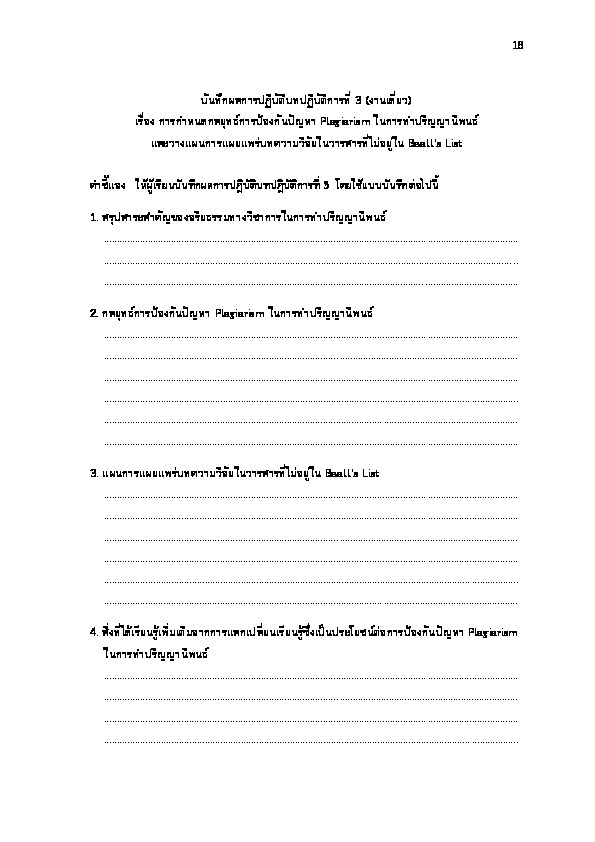 18
บันทึกผลการปฏิบัติบทปฏิบัติการที่ 3 (งานเดี่ยว)
เรื่อง การกำหนดกลยุทธ์การป้องกันปัญหา Plagiarism ในการทำปริญญานิพนธ์
และวางแผนการเผยแพร่บทความวิจัยในวารสารที่ไม่อยู่ใน Beall's List
คำชี้แจง ให้ผู้เรียนบันทึกผลการปฏิบัติบทปฏิบัติการที่ 3 โดยใช้แบบบันทึกต่อไปนี้
1. สรุปสาระสำคัญของจริยธรรมทางวิชาการในการทำปริญญานิพนธ์
2. กลยุทธ์การป้องกันปัญหา Plagiarism ในการทำปริญญานิพนธ์
3. แผนการเผยแพร่บทความวิจัยในวารสารที่ไม่อยู่ใน Beall's List
4. สิ่งที่ได้เรียนรู้เพิ่มเติมจากการแลกเปลี่ยนเรียนรู้ซึ่งเป็นประโยชน์ต่อการป้องกันปัญหา Plagiarism
ในการทำปริญญานิพนธ์